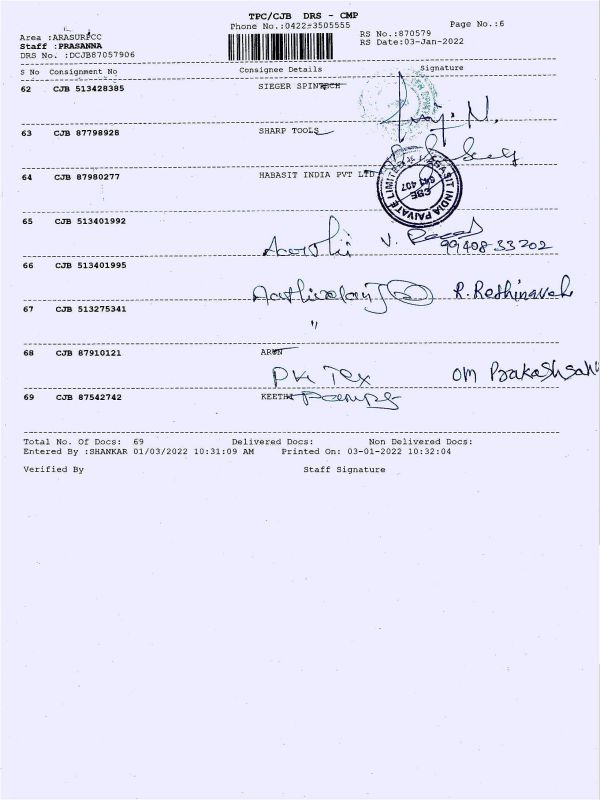 TPC/CJB DRS - CMP
Phone No.:0422-3505555 Page No.:6
Area :ARASURPCC RS No.:870579
Staff :PRASANNA RS Date:03-Jan-2022
DRS No. :DCJB87057906
S No Consignment No Consignee Details Signature
62 CJB 513428385 SIEGER SPINTECH
63 CJB 87798928 SHARP TOOLS
64 CJB 87980277 HABASIT INDIA PVT LTD
HABASIT INDIA PAIVATE LIMITED
CBE
641 407
65 CJB 513401992
V. 99408-33202
66 CJB 513401995
R. Rethinavel
67 CJB 513275341
"
68 CJB 87910121 ARUN
PK Tex OM Prakash sahu
69 CJB 87542742 KEETHI Pamps
Total No. Of Docs: 69 Delivered Docs: Non Delivered Docs:
Entered By :SHANKAR 01/03/2022 10:31:09 AM Printed On: 03-01-2022 10:32:04
Verified By Staff Signature